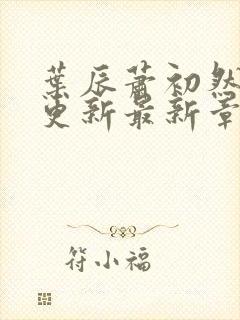 葉辰蕭初然
更新最新章
符小福